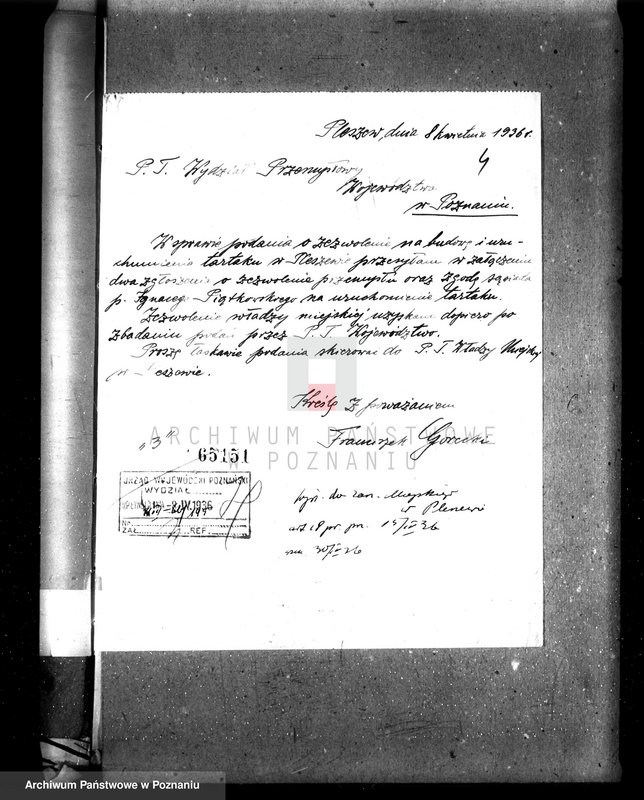 Pleszew, dnia 8 kwietnia 1936 r.
4
P. T. Wydział Przemysłowy
Województwa
w Poznaniu.
W sprawie podania o zezwolenie na budowę i uru-
chomienia tartaku w Pleszewie przesyłam w załączeniu
dwa zgłoszenia o zezwolenia przemysłu oraz zgodę sąsiada
p. Ignacego Piątkowskiego na uruchomienie tartaku.
Zezwolenie władzy miejskiej uzyskam dopiero po
zbadaniu podań przez P. T. Województwo.
Proszę łaskawie podania skierować do P. T. Władzy Miejskiej
w Pleszewie.
Kreślę z poważaniem
Franciszek Gorecki
ARCHIWUM PAŃSTWOWE
W POZNANIU
"3"
65151
URZĄD WOJEWÓDZKI POZNAŃSKI
WYDZIAŁ
WPŁYNĘŁO -8.IV.1936
Nr
ZAŁ. REF.
do zarz. Miejskiego
w Pleszewie
art 18 pr. pm. 15/IV 36
na 30/IV 36
Archiwum Państwowe w Poznaniu